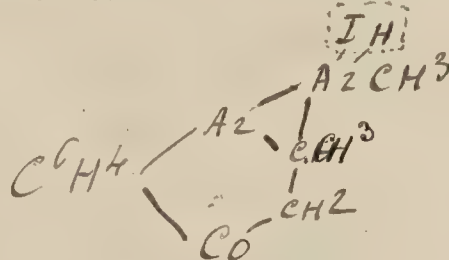 I H
Az CH³
Az
C CH³
C⁶H⁴
CH2
CO